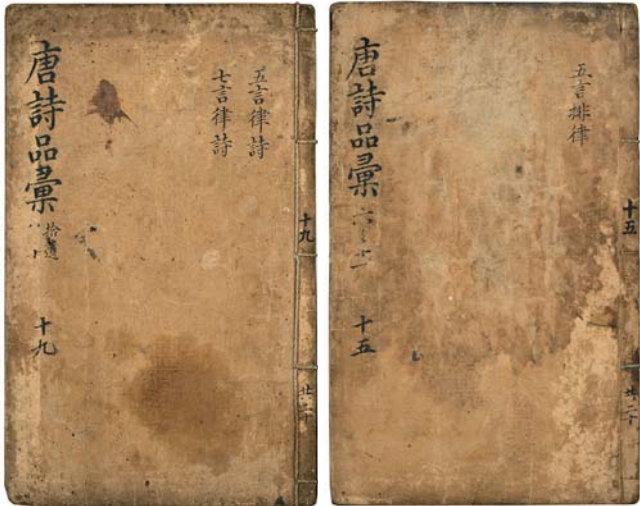 唐詩品彙
拾遺
八 十
十九
七言律詩
五言律詩
十九
共二十
唐詩品彙
六之十一
十五
五言排律
十五
共二十